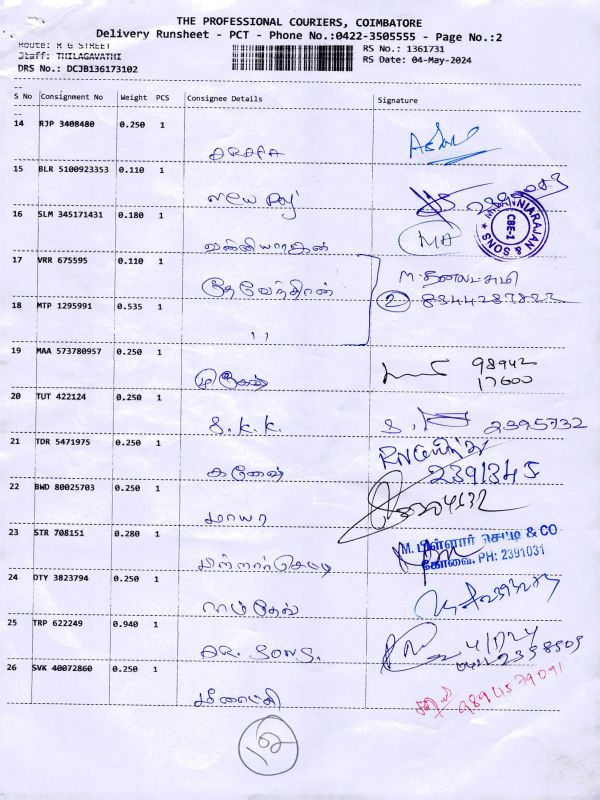 THE PROFESSIONAL COURIERS, COIMBATORE
Delivery Runsheet - PCT - Phone No.:0422-3505555 - Page No.:2
Route: R G STREET
RS No.: 1361731
Staff: THILAGAVATHI
RS Date: 04-May-2024
DRS No.: DCJB136173102
S No Consignment No Weight PCS Consignee Details Signature
14 RJP 3408480 0.250 1
15 BLR 5100923353 0.110 1
விஜய ராஜ்
16 SLM 345171431 0.180 1
MA
வன்னியராஜன்
NIARAJAN & SONS CBE-1
17 VRR 675595 0.110 1
தேவேந்திரன்
2 8344287822
18 MTP 1295991 0.535 1
"
19 MAA 573780957 0.250 1
முருகேஷ்
98942
17600
20 TUT 422124 0.250 1
S.K.K. 2395732
21 TDR 5471975 0.250 1
கணேஷ்
2391345
22 BWD 80025703 0.250 1
மாயா
23 STR 708151 0.280 1
பிள்ளார் செட்டி
M. பிள்ளார் செட்டி & CO
கோவை. PH: 2391031
24 DTY 3823794 0.250 1
ராம்தேவ்
25 TRP 622249 0.940 1
AR. SONS.
26 SVK 40072860 0.250 1
மீனாட்சி
9894579091